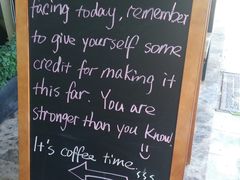 facing today, remember
to give yourself some
credit for making it
this far. You are
stronger than you know!
It's coffee time...